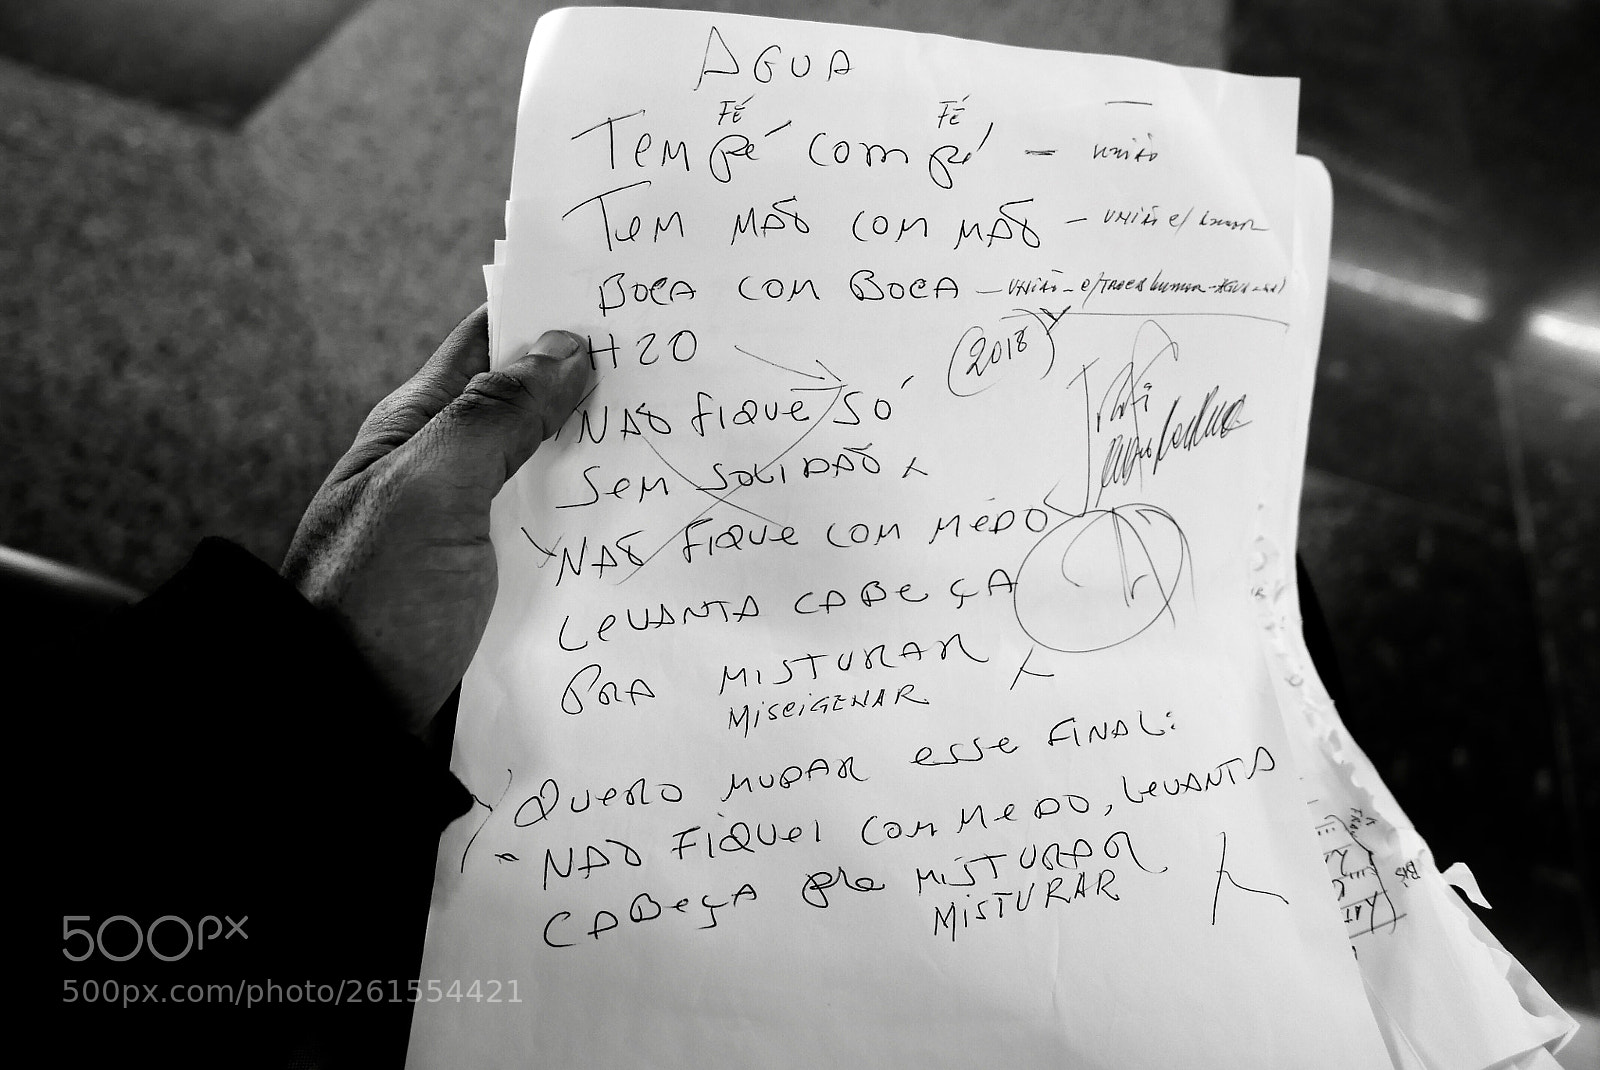 AGUA
FÉ FÉ
Tem pé com pé - união
Tem mão com mão - união c/
Boca com Boca - união -
H2O
(2018)
Não fique só
Sem solidão
Não fique com medo
Levanta cabeça
Pra misturar
Miscigenar
Quero mudar esse final:
- Não fiquei com medo, levanta
cabeça pra misturar
misturar
BIS
500px
500px.com/photo/261554421